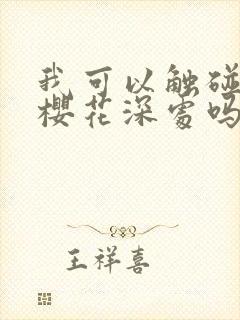 我可以触碰
樱花深处吗
王祥喜